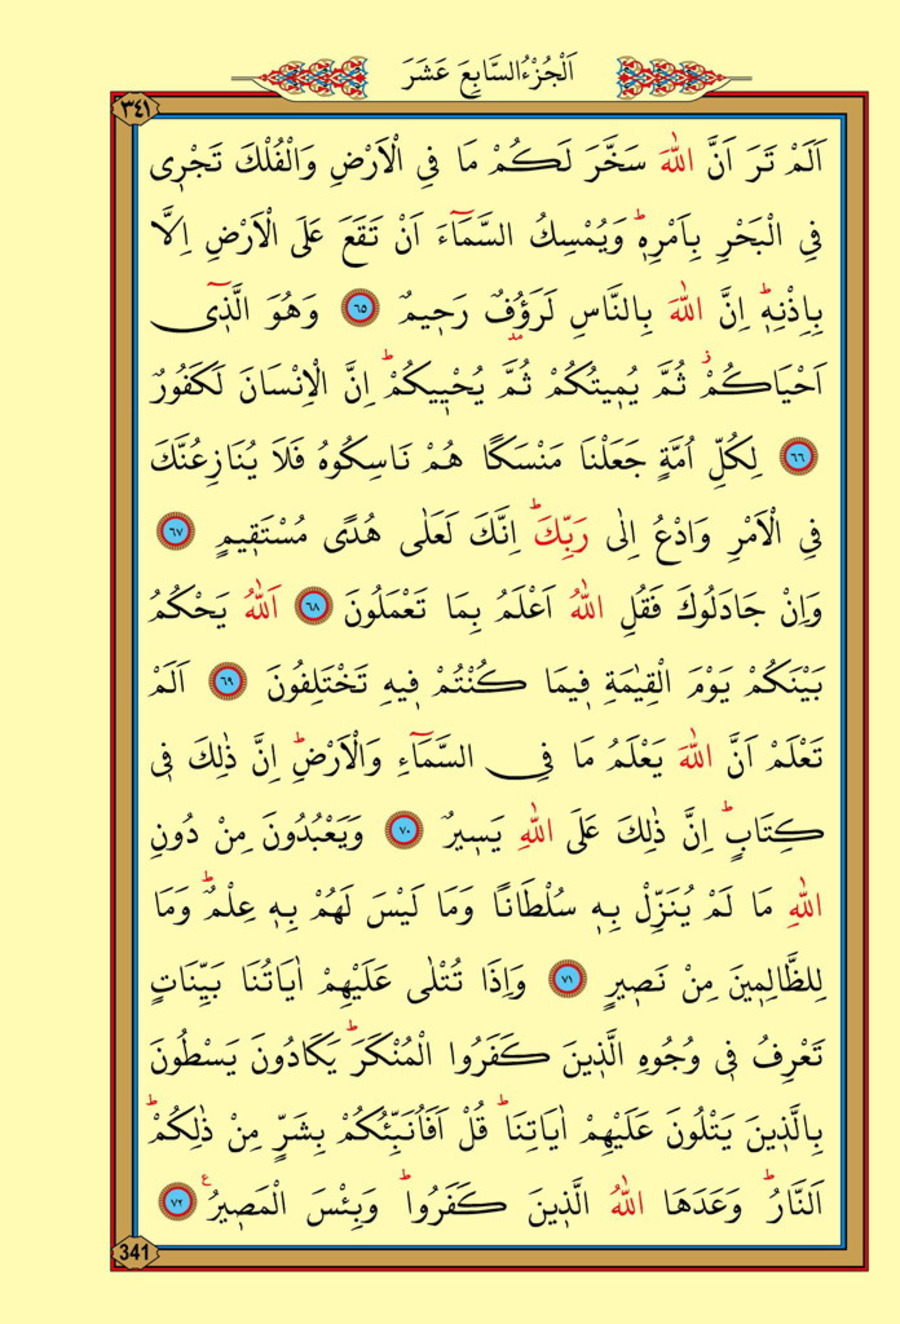 اَلْجُزْءُ السَّابِعَ عَشَرَ
٣٤١
اَلَمْ تَرَ اَنَّ اللّٰهَ سَخَّرَ لَكُمْ مَا فِي الْاَرْضِ وَالْفُلْكَ تَجْرٖي
فِي الْبَحْرِ بِاَمْرِهٖؕ وَيُمْسِكُ السَّمَٓاءَ اَنْ تَقَعَ عَلَى الْاَرْضِ اِلَّا
بِاِذْنِهٖؕ اِنَّ اللّٰهَ بِالنَّاسِ لَرَؤُ۫فٌ رَحٖيمٌ ﴿٦٥﴾ وَهُوَ الَّـذٖٓي
اَحْيَاكُمْؗ ثُمَّ يُمٖيتُكُمْ ثُمَّ يُحْيٖيكُمْؕ اِنَّ الْاِنْسَانَ لَكَفُورٌ
﴿٦٦﴾ لِكُلِّ اُمَّةٍ جَعَلْنَا مَنْسَكًا هُمْ نَاسِكُوهُ فَلَا يُنَازِعُنَّكَ
فِي الْاَمْرِ وَادْعُ اِلٰى رَبِّكَؕ اِنَّكَ لَعَلٰى هُدًى مُسْتَقٖيمٍ ﴿٦٧﴾
وَاِنْ جَادَلُوكَ فَقُلِ اللّٰهُ اَعْلَمُ بِمَا تَعْمَلُونَ ﴿٦٨﴾ اَللّٰهُ يَحْكُمُ
بَيْنَكُمْ يَوْمَ الْقِيٰمَةِ فٖيمَا كُنْتُمْ فٖيهِ تَخْتَلِفُونَ ﴿٦٩﴾ اَلَمْ
تَعْلَمْ اَنَّ اللّٰهَ يَعْلَمُ مَا فِي السَّمَٓاءِ وَالْاَرْضِؕ اِنَّ ذٰلِكَ فٖي
كِتَابٍؕ اِنَّ ذٰلِكَ عَلَى اللّٰهِ يَسٖيرٌ ﴿٧٠﴾ وَيَعْبُدُونَ مِنْ دُونِ
اللّٰهِ مَا لَمْ يُنَزِّلْ بِهٖ سُلْطَانًا وَمَا لَيْسَ لَهُمْ بِهٖ عِلْمٌؕ وَمَا
لِلظَّالِمٖينَ مِنْ نَصٖيرٍ ﴿٧١﴾ وَاِذَا تُتْلٰى عَلَيْهِمْ اٰيَاتُنَا بَيِّنَاتٍ
تَعْرِفُ فٖي وُجُوهِ الَّذٖينَ كَفَرُوا الْمُنْكَرَؕ يَكَادُونَ يَسْطُونَ
بِالَّذٖينَ يَتْلُونَ عَلَيْهِمْ اٰيَاتِنَاؕ قُلْ اَفَاُنَبِّئُكُمْ بِشَرٍّ مِنْ ذٰلِكُمْؕ
اَلنَّارُؕ وَعَدَهَا اللّٰهُ الَّذٖينَ كَفَرُواؕ وَبِئْسَ الْمَصٖيرُࣖ ﴿٧٢﴾
341